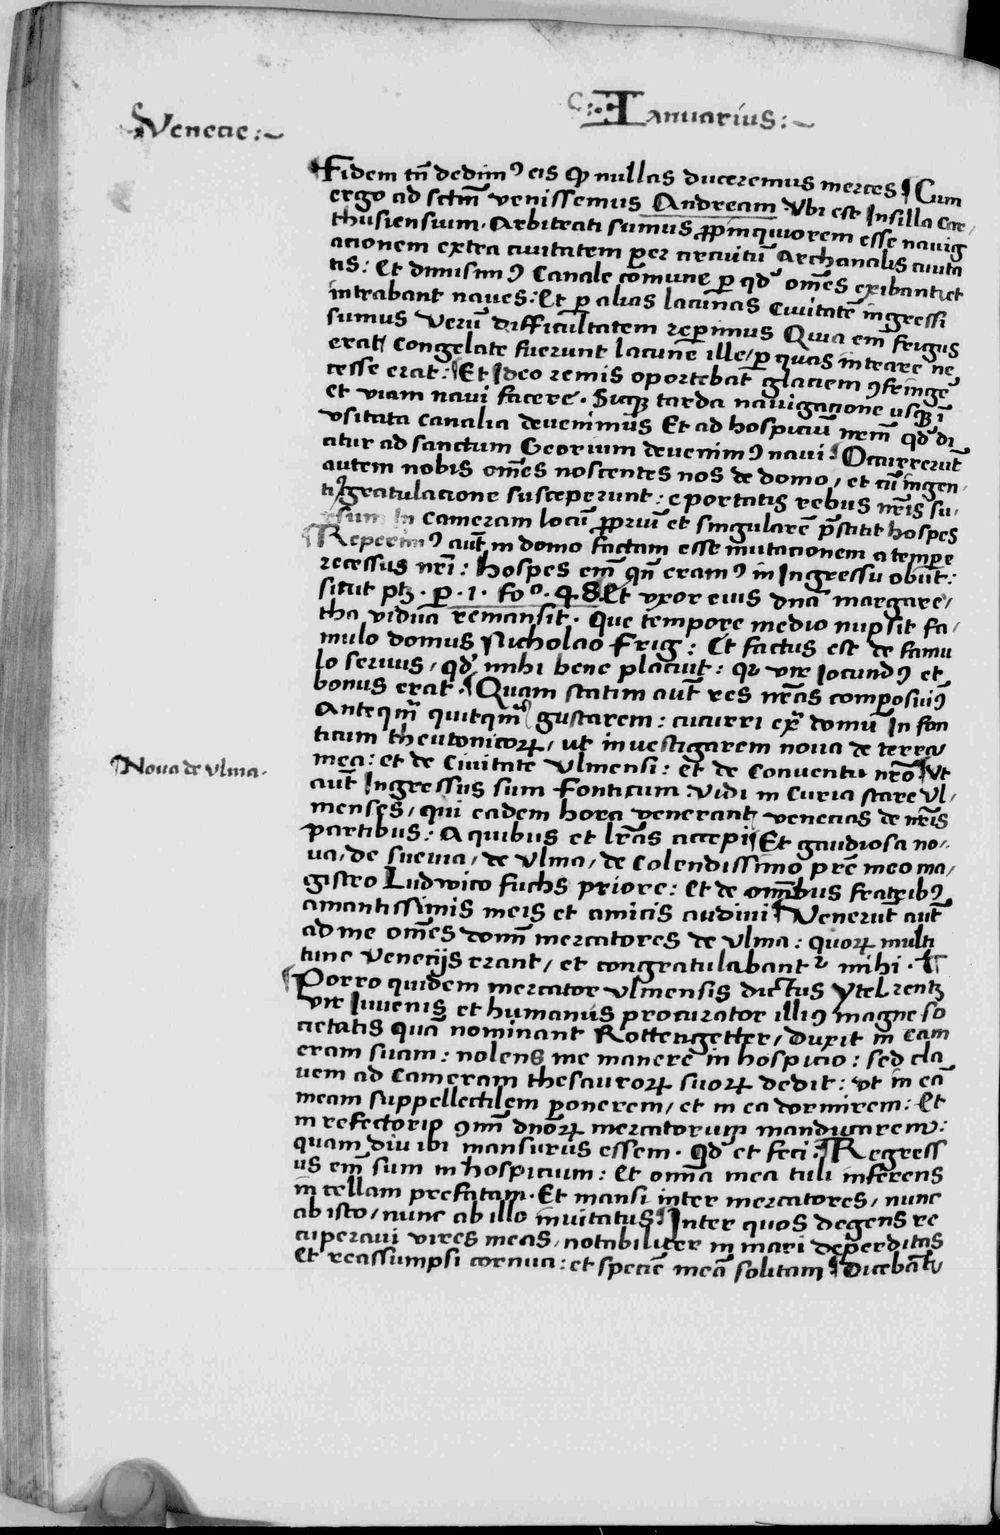 Venecie:~
C:. Ianuarius:~
Fidem tn̄ dedimꝰ eis ꝙ nullas duceremus merces ¶ Cum
ergo ad sctm̄ venissemus Andream Vbi est Insilla Car/
thusiensium. Arbitrati sumus ꝓpinquiorem esse nauig
acionem extra ciuitatem per circuitū Archanalis ciuita
tis: Et dimisimꝰ Canale com̄une ꝑ qd' om̄es exibant et
intrabant naues: Et ꝑ alias lacunas Ciuitatē ingressi
sumus Verū difficultatem reperimus Quia em̄ frigus
erat/ congelate fuerunt lacune ille/ ꝑ quas intrare ne
cesse erat: ¶ Et Ideo remis oportebat glaciem ꝯfringe
et viam naui facere. Sicqꝫ tarda nauigacione usqꝫ ī
vsitata canalia deuenimus Et ad hospiciū nr̄m qd' di
citur ad sanctum Georium deuenimꝰ naui: Occurrerūt
autem nobis om̄es noscentes nos de domo/ et cū ingen/
ti gratulacione susceperunt: eportatis rebus nr̄is su/
rsum In cameram locū ꝓpriū et singularē p̄stitit hospes
¶ Reperimꝰ aūt in domo factam esse mutacionem a tempere
recessus nr̄i: hospes em̄ qn̄ eramꝰ in Ingressu obiit:
sicut ptꝫ. ꝑ. 1. foᵒ. 98. Et vxor eius dn̄a margare/
tha vidua remansit. Que tempore medio nupsit fa/
mulo domus Nicholao Frig: Et factus est de famu
lo seruus/ qd' mihi bene placuit: qꝛ vir Iocundꝰ et
bonus erat. ¶ Quam statim aūt res nr̄as composuiꝰ
Anteqm̄ quitqm̄ gustarem: cucurri ex̄ domū In fon
ticum theutonicoꝝ/ ut inuestigarem noua de terra
mea: et de Ciuitate Vlmensi: et de Conuentu nr̄o ¶ Vt
Noua de Vlma.
aūt Ingressus sum Fonticum: Vidi in Curia stare Vl/
menses/ qui eadem hora venerant venecias de nr̄is
partibus: A quibus et lr̄as accepi ¶ Et gaudiosa no/
ua/ de sueuia/ de Vlma/ de Colendissimo pr̄e meo ma/
gistro Ludwico fuchs priore: Et de om̄ibus fratribꝰ
amantissimis meis et amicis audiui ¶ Venerūt aūt
ad me om̄es domī mercatores de Vlma: quoꝝ multi
tunc Venecijs erant/ et congratulabantᷣ mihi. ¶
¶ Porro quidem mercator Vlmensis dictus Ytel rentz
vir Iuuenis et humanus procurator illiꝰ magne so
cietatis quā nominant Rottengetter/ duxit in cam
eram suam: nolens me manere in hospicio: sed cla
uem ad Cameram thesauroꝝ suoꝝ dedit: vt in eā
meam suppellectilem ponerem/ et in ea dormirem: Et
in refectorio ꝯmī dn̄oꝝ mercatorum manducarem:
quam diu ibi mansurus essem. qd' et feci: ¶ Regress
us em̄ sum in hospicium: Et omīa mea tuli inferens
in cellam prefatam. Et mansi inter mercatores/ nunc
ab isto/ nunc ab illo inuitatus ¶ Inter quos degens re
cuperaui vires meas/ notabiliter in mari deperditas
Et reassumpsi cornua: et speciē meā solitam ¶ dicebāt